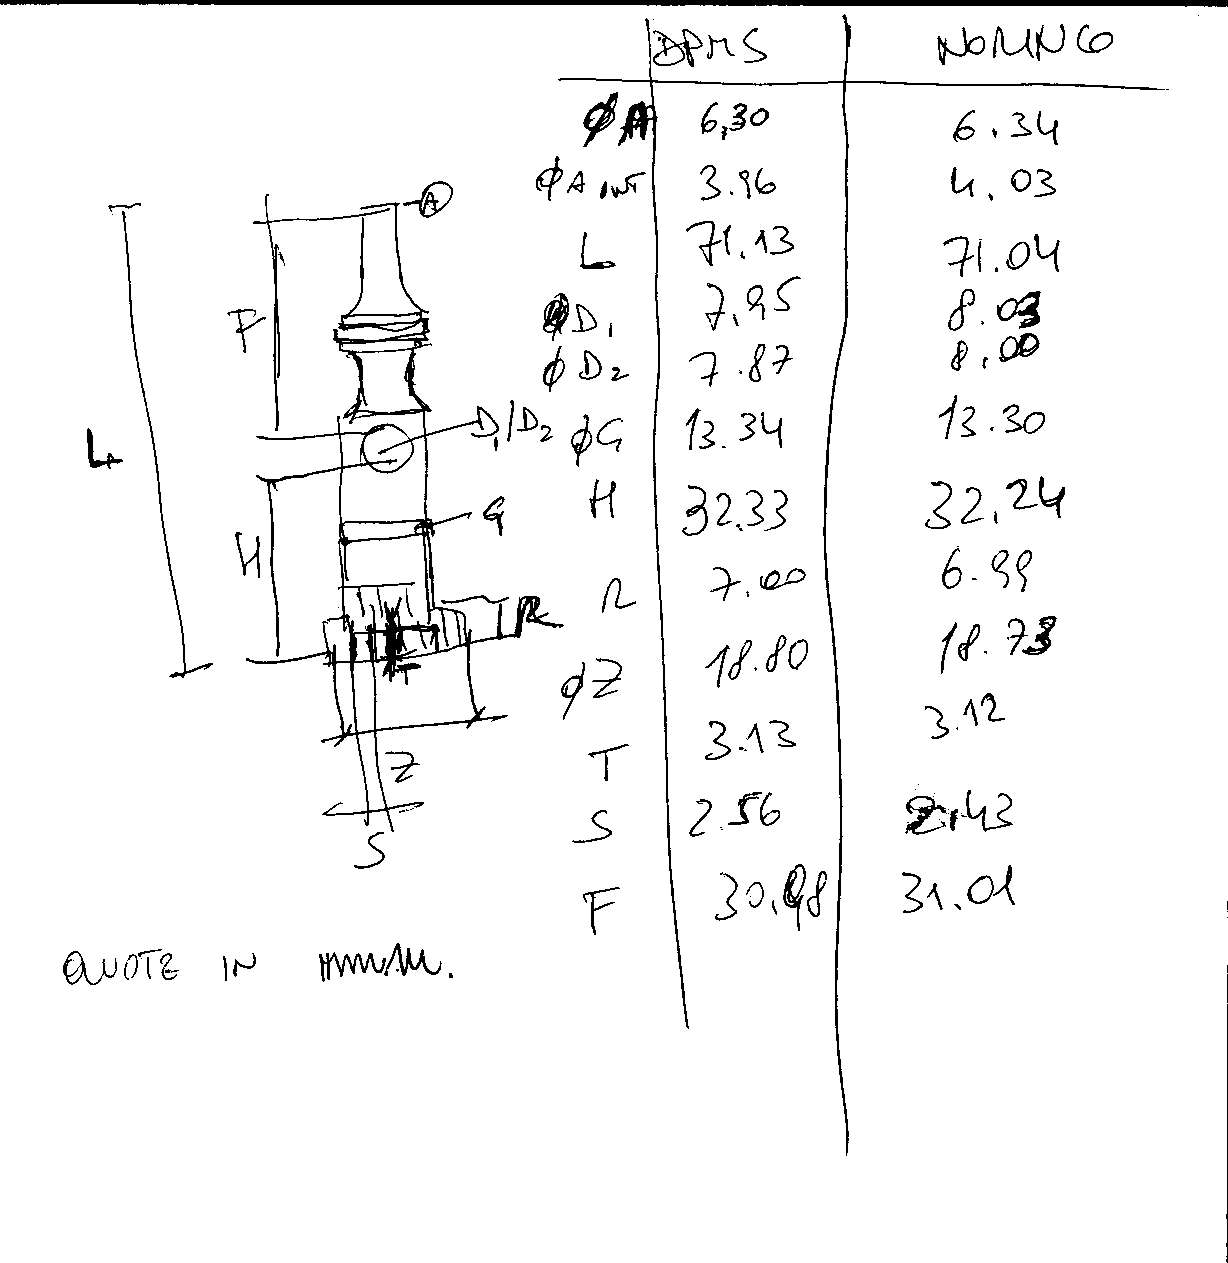 DPMS NOMINCO
ØA 6,30 6.34
ØA INT 3.96 4.03
L 71.13 71.04
ØD1 7,95 8.03
ØD2 7.87 8,00
ØG 13.34 13.30
H 32.33 32,24
R 7.00 6.99
ØZ 18.80 18.73
T 3.13 3.12
S 2.56 2.43
F 30,98 31.01
A
F
L
D1/D2
G
H
R
T
Z
S
QUOTE IN mm.